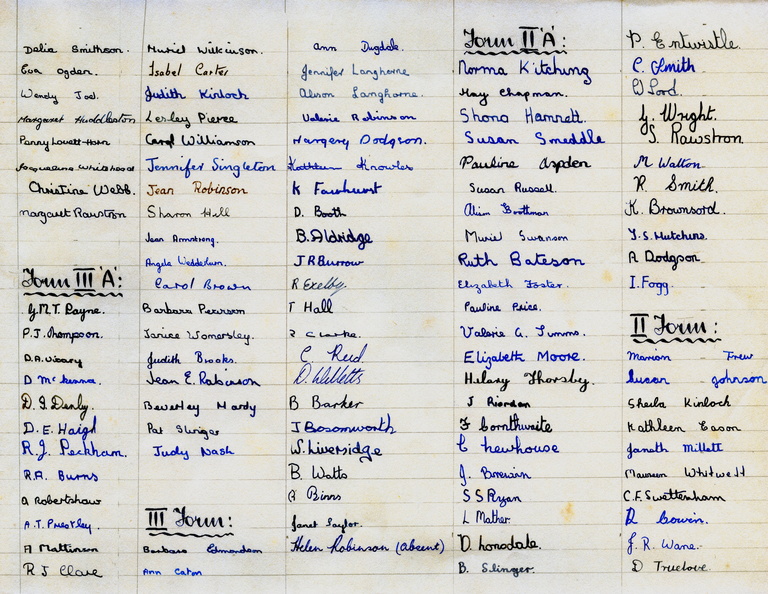 Dalia Smithson.
Eva Ogden.
Wendy Joel.
Margaret Huddleston
Penny Lovett-Horn
Jacqueline Whitehead
Christine Webb.
Margaret Rawston
Form III 'A':
G.M.T. Payne.
P.J. Thompson.
D.A. Veary
D McKenna.
D. J. Denby.
D. E. Haigh
R. J. Peckham.
R.A. Burns
A Robertshaw
A.T. Priestley.
A Mattinson
R J Clare
Muriel Wilkinson.
Isabel Carter
Judith Kinloch
Lesley Pierce
Carol Williamson
Jennifer Singleton
Jean Robinson
Sharon Hall
Jean Armstrong.
Angela Wedderburn.
Carol Brown
Barbara Pearson
Janice Womersley.
Judith Brooks.
Jean E. Robinson
Beverley Hardy
Pat Slinger
Judy Nash
III Form:
Barbara Edmondson
Ann Caton
Ann Dugdale.
Jennifer Langhorne
Alison Langhorne.
Valerie Robinson
Margery Dodgson.
Kathleen Knowles
K Fawhurst
D. Booth
B. Aldridge
J R Burrow
R Exelby
T Hall
R Clarke.
C. Reid
D. Willetts
B Barker
J Bosomworth
W. Liversidge
B. Watts
Binns
Janet Saylor.
Helen Robinson (absent)
Form II 'A':
Norma Kitching
Kay Chapman.
Shona Hamnett.
Susan Smeddle
Pauline Aspden
Susan Russell.
Alison Boothman
Muriel Swanson
Ruth Bateson
Elizabeth Foster.
Pauline Price.
Valerie A. Timms.
Elizabeth Moore.
Hilary Thorsby.
J Riordan
F Cornthwaite
C Newhouse
J. Brewin
S S Ryan
L Mather.
D. Lonsdale.
B. Slinger.
P. Entwistle.
C. Smith
D Lord.
G. Wright.
S. Rawstron
M Walton
R. Smith.
K. Brownsord.
T.S. Hutchins.
A Dodgson
I. Fogg.
II Form:
Marion Frew
Susan Johnson
Sheila Kinloch
Kathleen Eason
Janeth Millett
Maureen Whitwell
C.F. Swettenham
D. Cowin.
J. R. Wane.
D Truelove